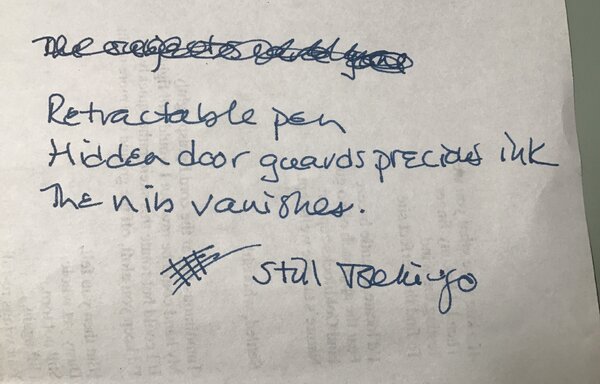 The
Retractable pen
Hidden door guards precious ink
The nib vanishes.
Still Tsekiyo